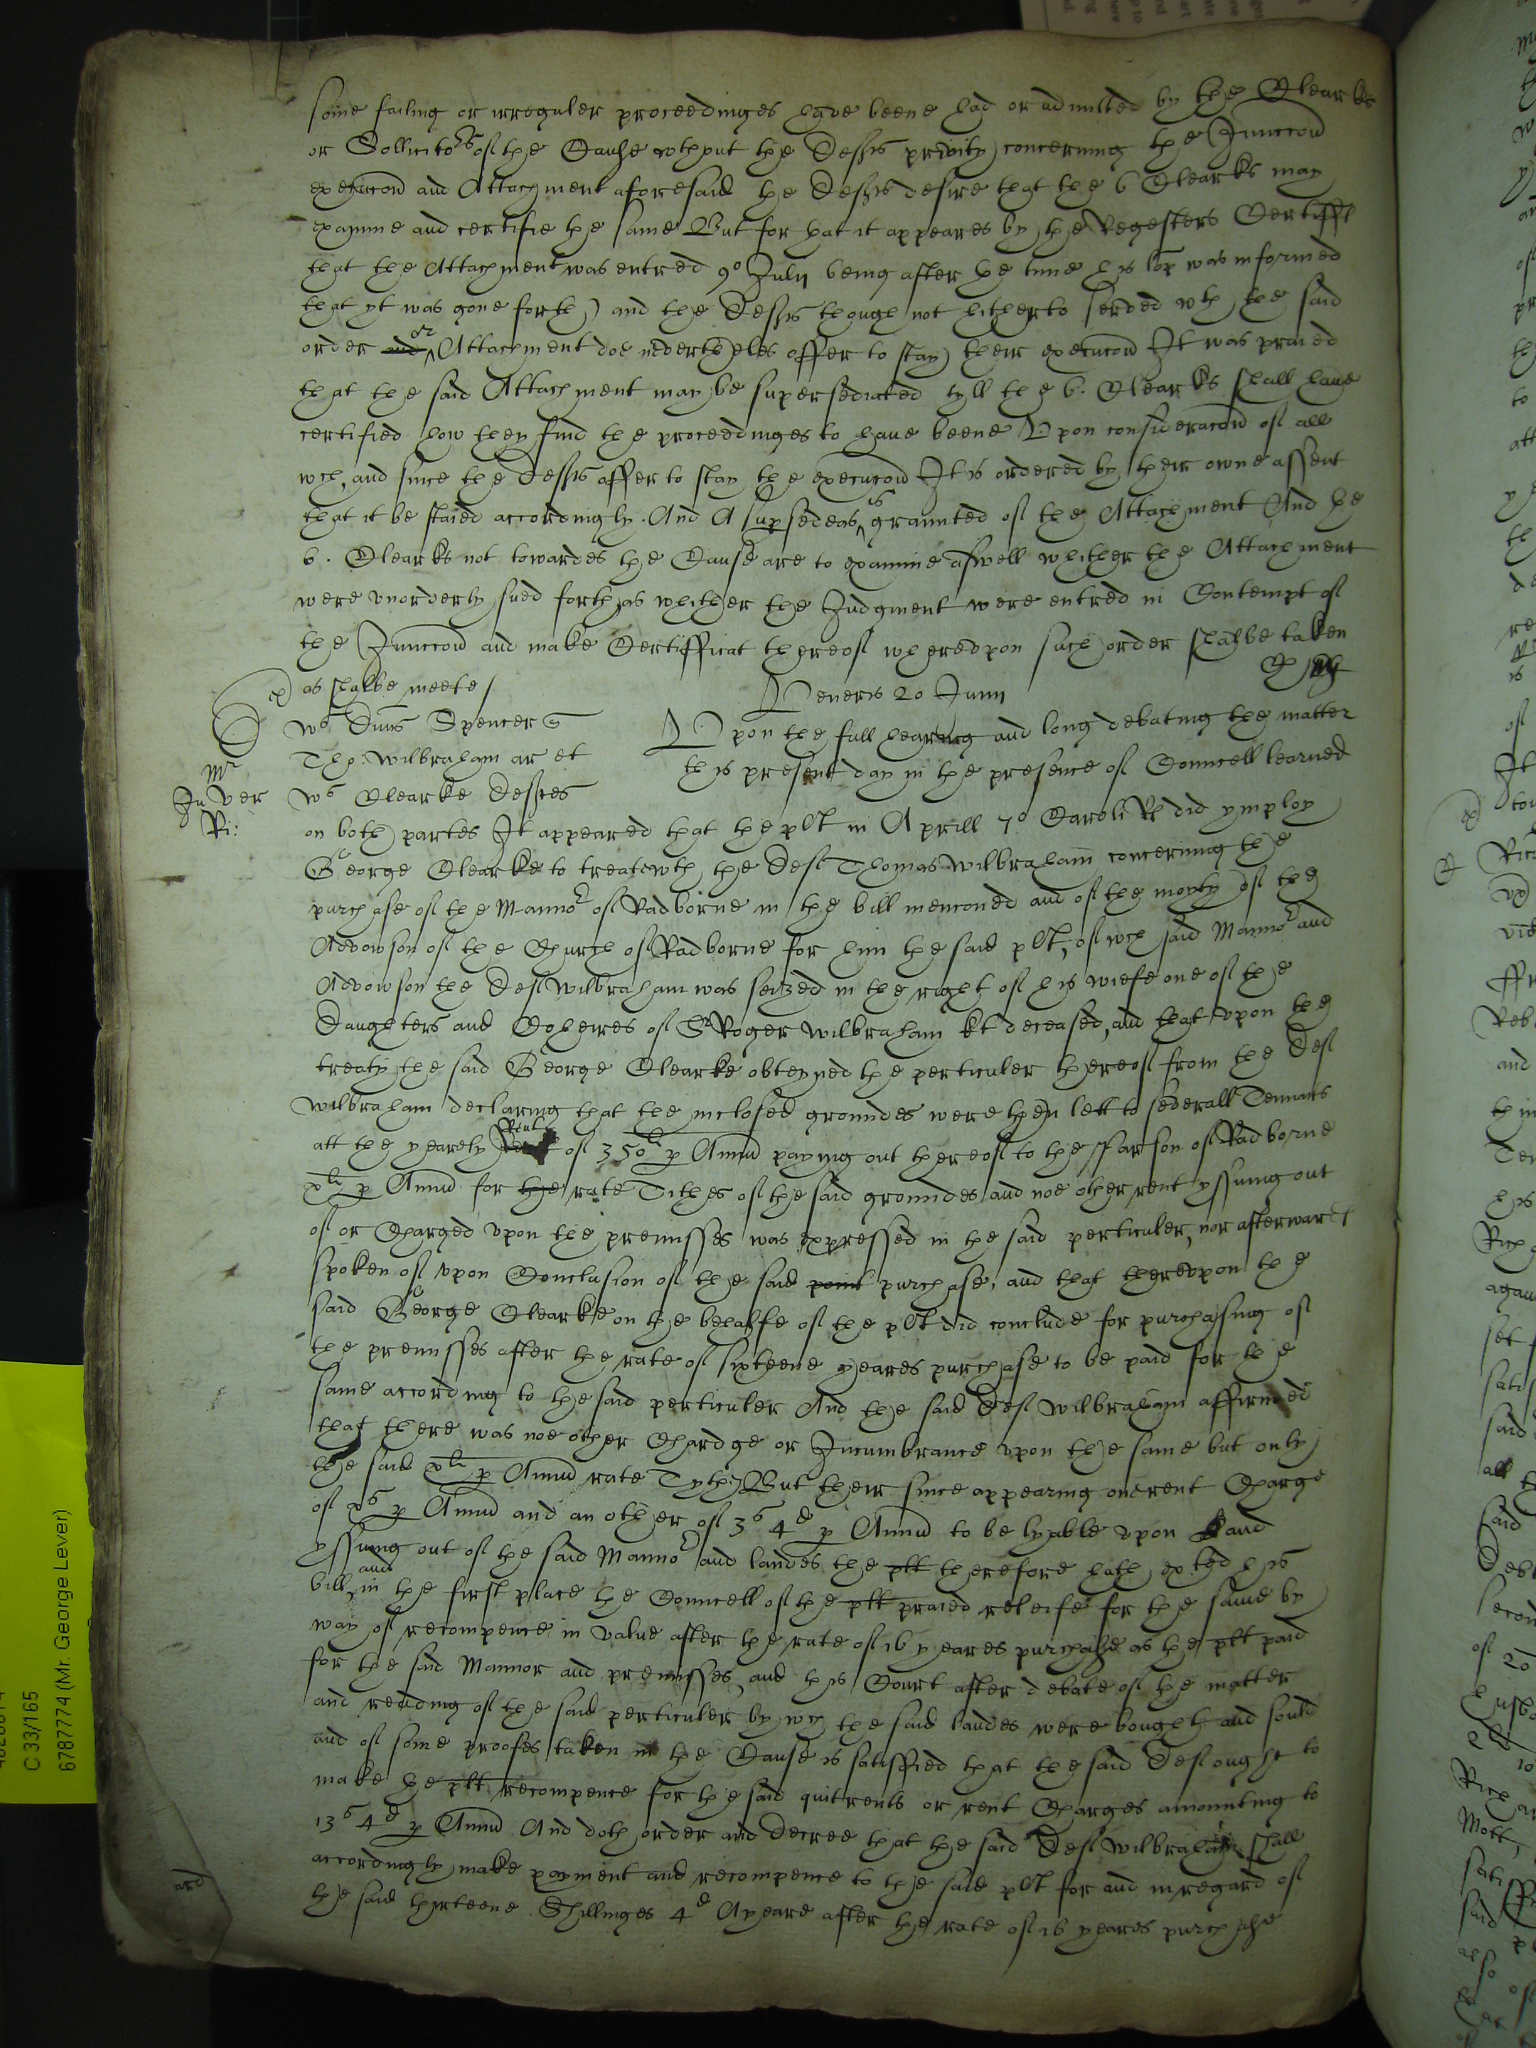 some failing or irreguler proceedinges have beene had or admitted by the Clearks
or Sollicitors of the Cause wthout the Defts privity concerning the Iniuccon
execucon and Attachment aforesaid the Defts desire that the 6 Clearks may
examine and certifie the same But for that it appeares by the Regesters Certifft
that the Attachment was entred 9o Julij being after the time his lop was informed
that yt was gone forth and the Defts though not hitherto served wth the said
order and or Attachment doe neverthelesse offer to stay their execucon It was praied
that the said Attachment may be supersediated tyll the 6. Clearks shall have
certified how they find the proceedinges to have beene Upon consideracon of all
wch, and since the Defts offer to stay the execucon It is ordered by their owne assent
that it be staied accordingly. And A supsedeas is graunted of the Attachment And the
6. Clearks not towardes the Cause are to examine aswell whither the Attachment
were unorderly sued forth as whither the Judgment were entred in Contempt of
the Iniuccon and make Certifficat thereof whereupon such order shalbe taken
as shalbe meete /
Veneris 20 Junij
Ws Dns Spencer
Tho: Wilbraham ar et
Ws Clearke Deftes
Mr
In ver
Ri:
Upon the full hearing and long debating the matter
this present day in the presence of Councell learned
on both partes It appeared that the plt in Aprill 7o Caroli Rs did ymploy
George Clearke to treate wth the Deft Thomas Wilbraham concerning the
purchase of the Mannor of Radborne in the bill mencioned and of the moyty of the
Advowson of the Church of Radborne for him the said plt, of wch said Mannor and
Advowson the Deft Wilbraham was seized in the right of his wiefe one of the
Daughters and Coheires of Sr Roger Wilbraham kt deceased, and that upon the
treaty the said George Clearke obteyned the perticuler thereof from the Deft
Wilbraham declaring that the inclosed groundes were then lett to severall Tennants
att the yearely Rent of 350li p Annu paying out thereof to the Parson of Radborne
xli p Annu for the rate Tithes of the said groundes and noe other rent yssuing out
of or Charged upon the premisses was expressed in the said perticuler, nor afterwards
spoken of upon Conclusion of the said point purchase, and that thereupon the
said George Clearke on the behalfe of the plt did conclude for purchasing of
the premisses after the rate of sixteene yeares purchase to be paid for the
same according to the said perticuler And the said Deft Wilbraham affirmed
that there was noe other Chardge or Incumbrance upon the same but only
the said xli p Annu rate Tyth, But their since appearing one rent Charge
of xs p Annu and an other of 3s 4d p Annu to be lyable upon and
yssuing out of the said Mannor and landes the plt therefore hath exted his
bill, and in the first place the Councell of the plt praied releife for the same by
way of recompence in value after the rate of 16 yeares purchase as the plt paid
for the said Mannor and premisses, and this Court after debate of the matter
and reading of the said perticuler by wch the said landes were bought and sould
and of some proofes taken in the Cause is satisfied that the said Deft ought to
make the plt recompence for the said quitrents or rent Charges amounting to
13s 4d p Annu And doth order and decree that the said Deft Wilbraham shall
accordingly make payment and recompence to the said plt for and in regard of
the said thirteene Shillinges 4d A yeare after the rate of 16 yeares purchase
C 33/165
67877774 (Mr. George Lever)